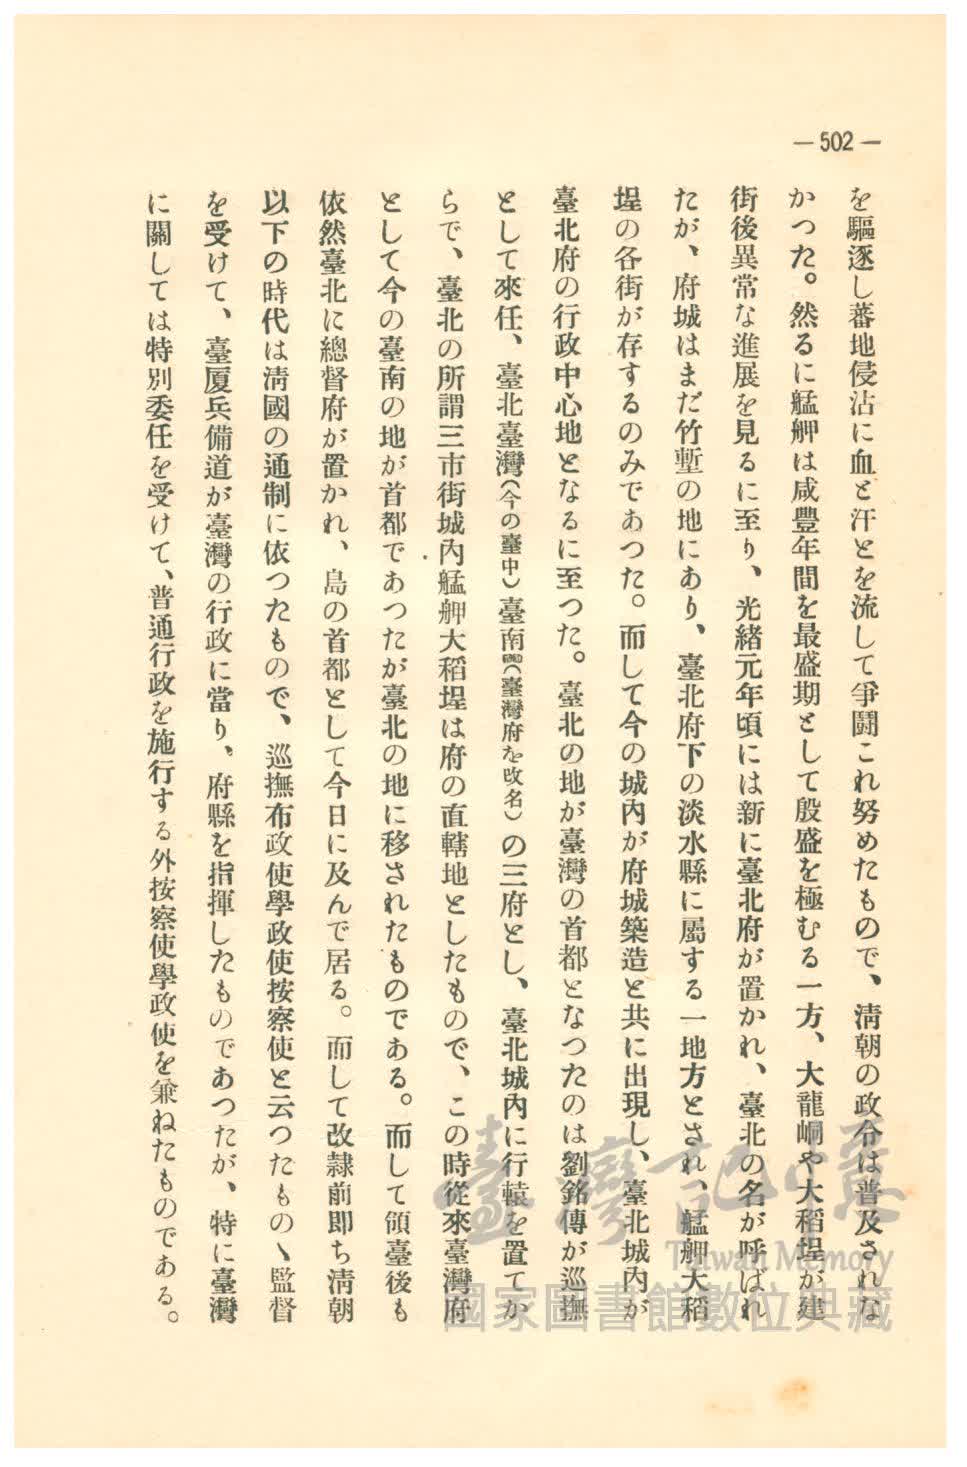 — 502 —
を驅逐し蕃地侵沾に血と汗とを流して爭鬪これ努めたもので、淸朝の政令は普及されな
かつた。然るに艋舺は咸豐年間を最盛期として殷盛を極むる一方、大龍峒や大稻埕が建
街後異常な進展を見るに至り、光緖元年頃には新に臺北府が置かれ、臺北の名が呼ばれ
たが、府城はまだ竹塹の地にあり、臺北府下の淡水縣に屬する一地方とされ、艋舺大稻
埕の各街が存するのみであつた。而して今の城內が府城築造と共に出現し、臺北城內が
臺北府の行政中心地となるに至つた。臺北の地が臺灣の首都となつたのは劉銘傳が巡撫
として來任、臺北臺灣(今の臺中)臺南(臺灣府を改名)の三府とし、臺北城內に行轅を置てか
らで、臺北の所謂三市街城內艋舺大稻埕は府の直轄地としたもので、この時從來臺灣府
として今の臺南の地が首都であつたが臺北の地に移されたものである。而して領臺後も
依然臺北に總督府が置かれ、島の首都として今日に及んで居る。而して改隷前卽ち淸朝
以下の時代は淸國の通制に依つたもので、巡撫布政使學政使按察使と云つたものゝ監督
を受けて、臺厦兵備道が臺灣の行政に當り、府縣を指揮したものであつたが、特に臺灣
に關しては特別委任を受けて、普通行政を施行する外按察使學政使を兼ねたものである。
臺灣記憶
Taiwan Memory
國家圖書館數位典藏